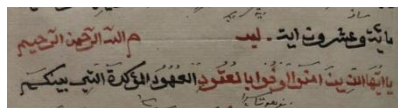 ماية وعشرون ايت . بسم الله الرحمن الرحيم
يا ايها الذين امنوا اوفوا بالعقود العهود المؤكدة التي بينكم